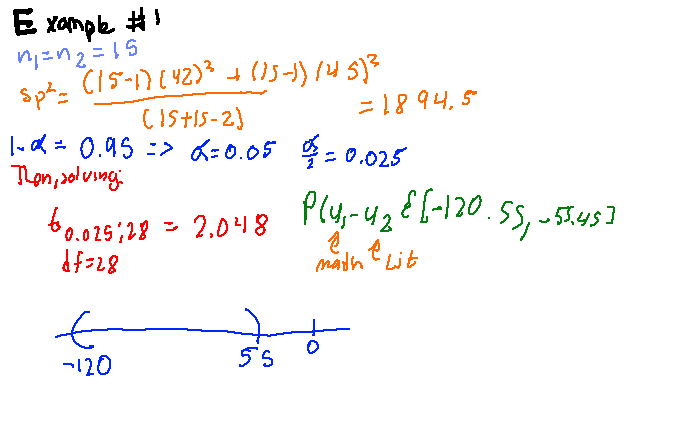 Example #1
n₁=n₂=15
sp²= (15-1)(42)² + (15-1)(45)² / (15+15-2) = 1894.5
1-α = 0.95 => α=0.05 α/2 = 0.025
Then, solving:
t₀.₀₂₅;₂₈ = 2.048
P(u₁-u₂ ε [-120.55, -55.45]
df=28
math Lit
-120 55 0